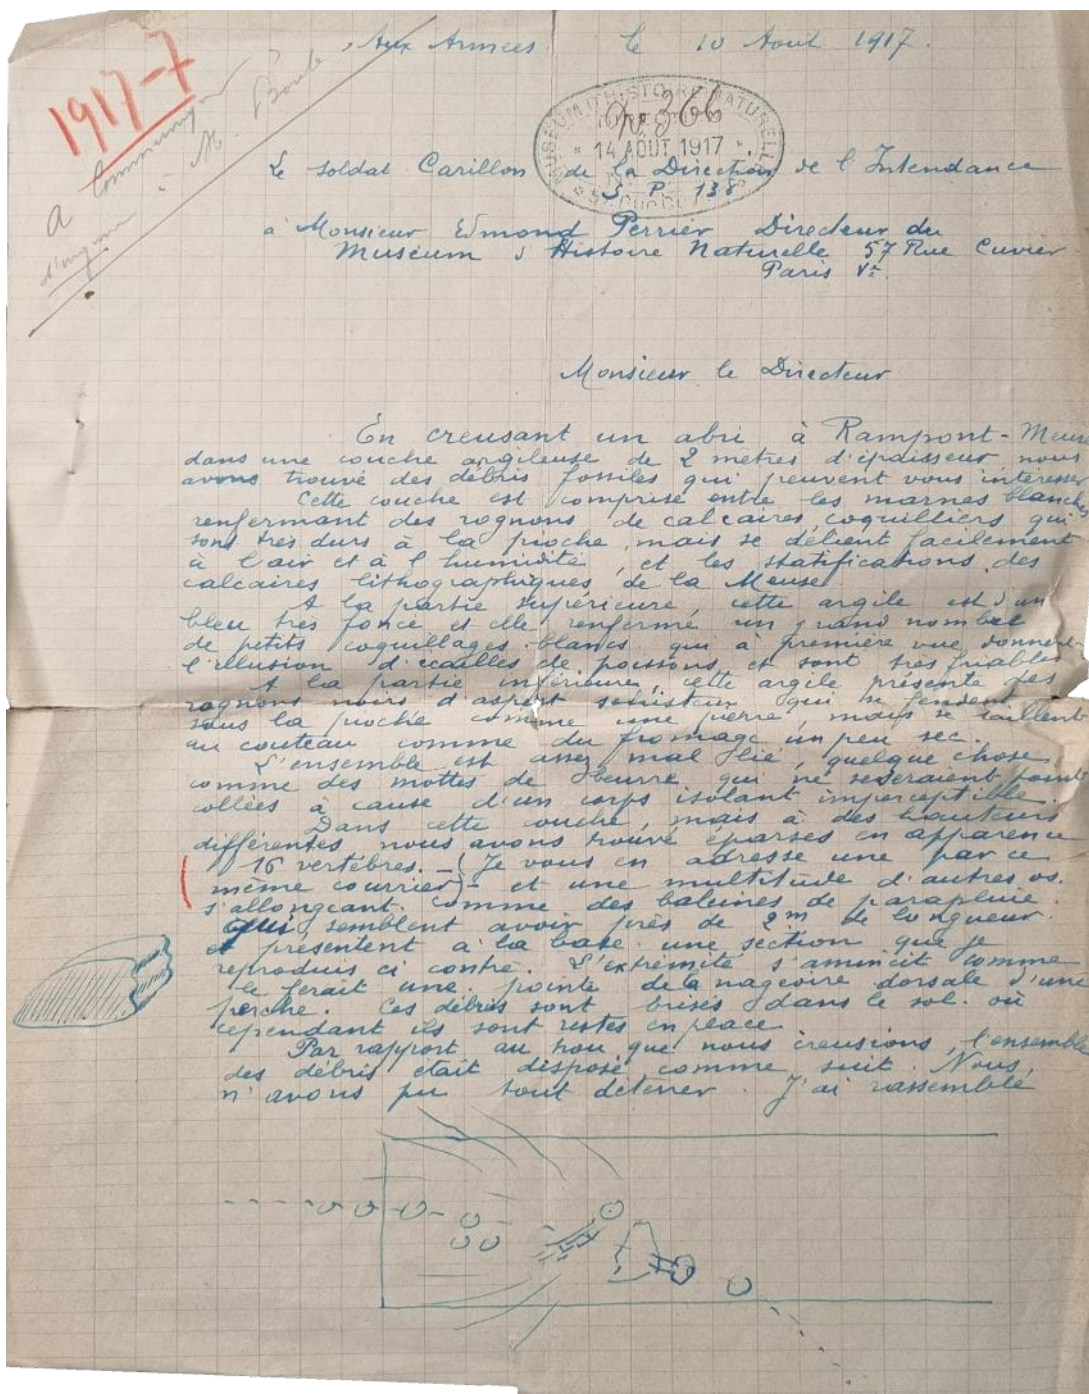 Aux Armées le 10 Aout 1917.
1917-7
A communiquer
à M. Boule
MUSEUM D'HISTOIRE NATURELLE
No 366
* 14 AOUT 1917 *
Le soldat Carillon de la Direction de l Intendance
S. P. 138
à Monsieur Edmond Perrier Directeur du
Muséum d Histoire Naturelle 57 Rue Cuvier
Paris Ve
Monsieur le Directeur
En creusant un abri à Rampont-Meuse
dans une couche argileuse de 2 mètres d'épaisseur nous
avons trouvé des débris fossiles qui peuvent vous intéresser
Cette couche est comprise entre les marnes blanches
renfermant des rognons de calcaires coquilliers qui
sont très durs à la pioche, mais se délient facilement
à l'air et à l humidité, et les statifications des
calcaires lithographiques de la Meuse
A la partie supérieure, cette argile est d'un
bleu très foncé et elle renferme un grand nombre
de petits coquillages blancs qui à première vue donnent
l'illusion d'écailles de poissons et sont très friables
A la partie inférieure, cette argile présente des
rognons noirs d'aspect schisteux qui se fendent
sous la pioche comme une pierre, mais se taillent
au couteau comme du fromage un peu sec.
L'ensemble est assez mal lié, quelque chose
comme des mottes de beurre qui ne seraient point
collées à cause d'un corps isolant imperceptible.
Dans cette couche, mais à des hauteurs
différentes nous avons trouvé éparses en apparence
16 vertèbres. - (Je vous en adresse une par ce
même courrier) - et une multitude d'autres os.
s'allongeant comme des baleines de parapluie.
qui semblent avoir près de 2m de longueur
et présentent à la base une section que je
reproduis ci contre. L'extrémité s'amincit comme
le ferait une pointe de la nageoire dorsale d'une
perche. Ces débris sont brisés dans le sol où
cependant ils sont restés en place.
Par rapport au trou que nous creusions, l'ensemble
des débris était disposé comme suit. Nous
n'avons pu tout déterrer. J'ai rassemblé